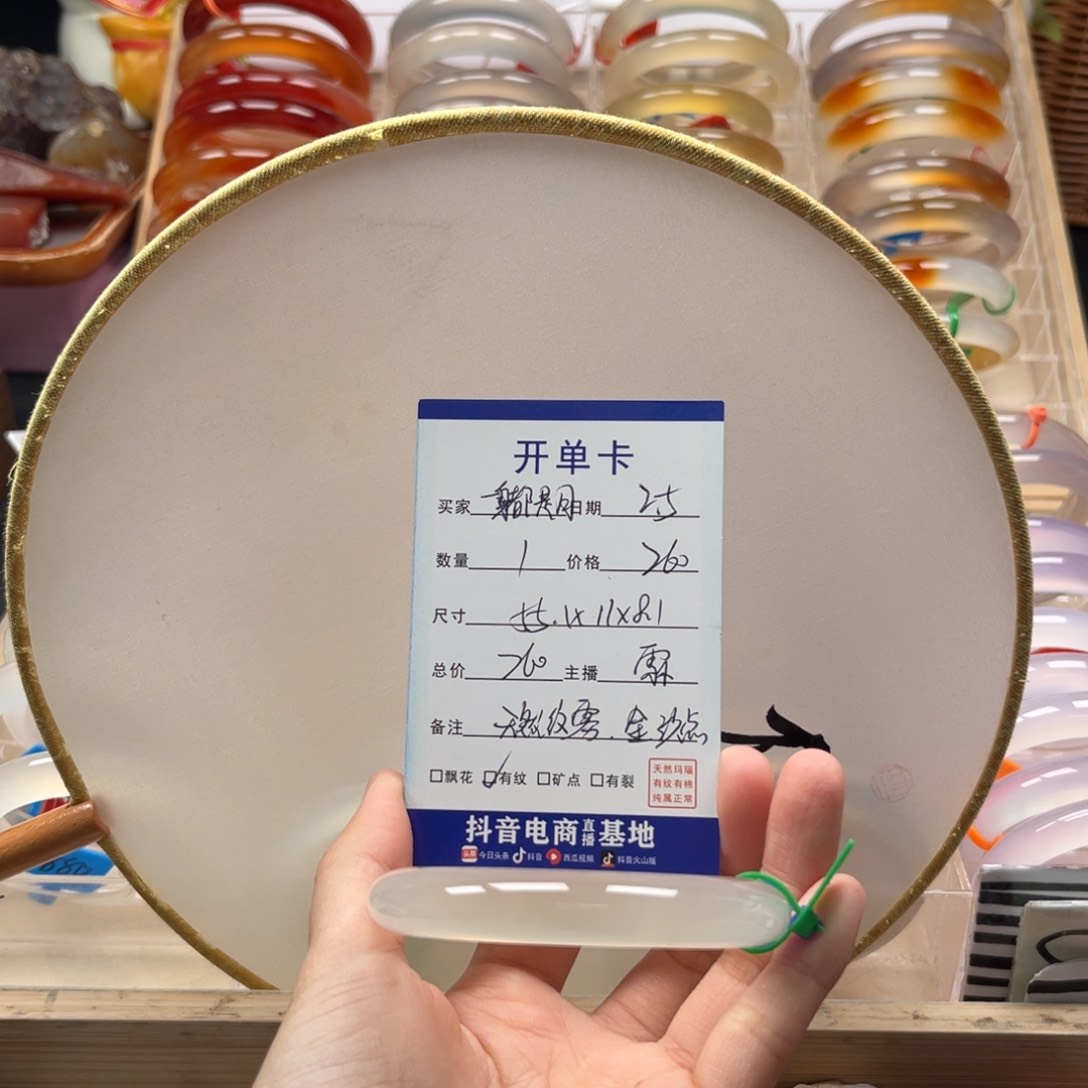 开单卡
买家 日期 25
数量 1 价格 260
尺寸 55.1x11x8.1
总价 260 主播
备注
□飘花 ☑有纹 □矿点 □有裂
天然玛瑙
有纹有棉
纯属正常
抖音电商直播基地
头条 今日头条 抖音 西瓜视频 抖音火山版